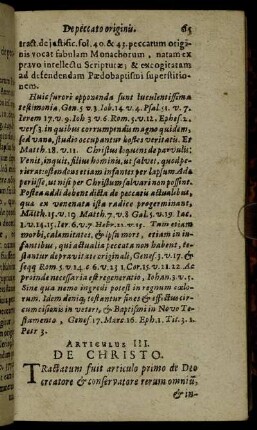 De peccato originis. 65
tract. de justific. fol. 40. & 43. peccatum origi-
nis vocat fabulam Monachorum, natam ex
pravo intellectu Scripturæ; & excogitatam
ad defendendam Pædobaptismi superstitio-
nem.
Huic furori opponenda sunt luculentissima
testimonia. Gen. 5 v 3. Iob. 14 v. 4. Psal. 51. v. 7.
Ierem 17. v. 9. Ioh 3 v 6. Rom. 5. v. 12. Ephes. 2.
vers 3. in quibus corrumpendis magno quidem,
sed vano, studio occupantur hostes veritatis. Et
Matth. 18. v. 11. Christus loquens de parvulis:
Venit, inquit, filius hominis, ut salvet, quod pe-
rierat: ostendens etiam infantes per lapsum Ada
periisse, ut nisi per Christum salvari non possint.
Postea addi debent dicta de peccatis actualibus,
qua ex venenata ista radice progerminant,
Matth. 15. v. 19 Matth. 7. v. 8 Gal. 5. v. 19. Iac.
1. v. 14. 15. Ier 6. v. 7. Hebr. 12. v. 15. Tum etiam
morbi, calamitates, & ipsa mors, etiam in in-
fantibus, qui actualia peccata non habent, te-
stantur de pravitate originali, Genes. 3. v. 17. &
seqq Rom 5 v. 14. 6 6. v. 23 1. Cor. 15. v. 21. 22 Ac
proinde necessaria est regeneratio, Iohan. 3. v. 5.
Sine qua nemo ingredi potest in regnum cœ-
lorum. Idem deniq; testantur fines & effectus cir-
cumcisionis in veteri, & Baptismi in Novo Te-
stamento, Genes 17. Marc 16. Eph. 1. Tit. 3. 1.
Petr 3.
ARTICULUS III.
DE CHRISTO.
TRactatum fuit articulo primo de Deo
creatore & conservatore rerum omniũ,
& in-